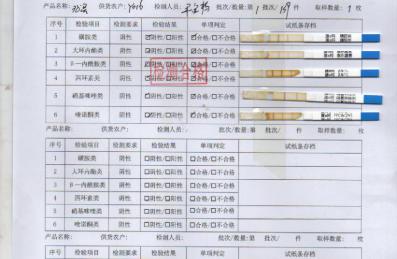 产品名称: 供货农户: 检测人员: 批次/数量:第1批次/ 取样数量:1枚
序号 检验项目 检测要求 检验结果 单项判定 试纸条存档
1 磺胺类 阴性 ☑阴性/☐阳性 ☑合格/☐不合格
2 大环内酯类 阴性 ☑阴性/☐阳性 ☑合格/☐不合格
3 β-内酰胺类 阴性 ☑阴性/☐阳性 ☑合格/☐不合格
4 四环素类 阴性 ☑阴性/☐阳性 ☑合格/☐不合格
5 硝基咪唑类 阴性 ☑阴性/☐阳性 ☑合格/☐不合格
6 喹诺酮类 阴性 ☑阴性/☐阳性 ☑合格/☐不合格
检测合格
产品名称: 供货农户: 检测人员: 批次/数量:第 批次/ 件 取样数量: 枚
序号 检验项目 检测要求 检验结果 单项判定 试纸条存档
1 磺胺类 阴性 ☐阴性/☐阳性 ☐合格/☐不合格
2 大环内酯类 阴性 ☐阴性/☐阳性 ☐合格/☐不合格
3 β-内酰胺类 阴性 ☐阴性/☐阳性 ☐合格/☐不合格
4 四环素类 阴性 ☐阴性/☐阳性 ☐合格/☐不合格
5 硝基咪唑类 阴性 ☐阴性/☐阳性 ☐合格/☐不合格
6 喹诺酮类 阴性 ☐阴性/☐阳性 ☐合格/☐不合格
产品名称: 供货农户: 检测人员: 批次/数量:第 批次/ 件 取样数量: 枚
序号 检验项目 检测要求 检验结果 单项判定 试纸条存档